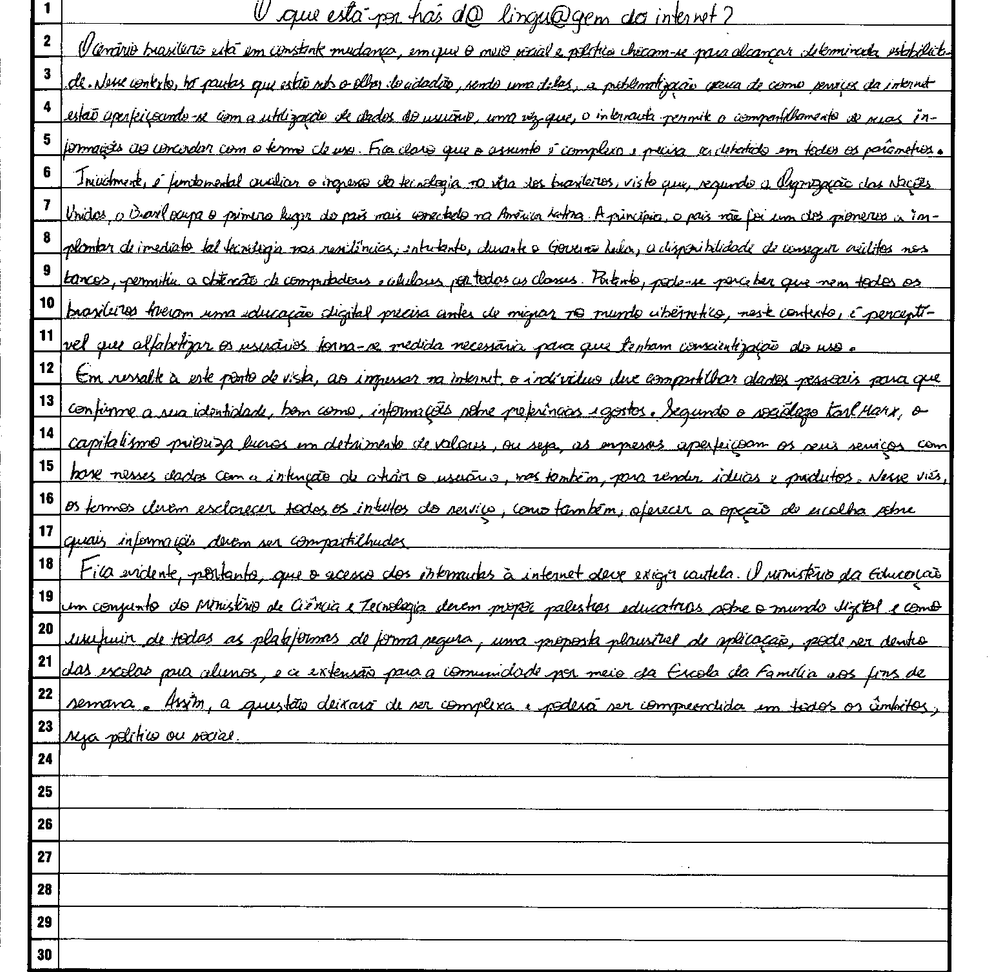 1 O que está por trás d@ lingu@gem do internet?
2 O cenário brasileiro está em constante mudança, em que o meio social e político chocam-se para alcançar determinada estabilida-
3 de. Nesse contexto, há pautas que estão sob o olhar do cidadão, sendo uma delas, a problematização acerca de como serviços da internet
4 estão aperfeiçoando-se com a utilização de dados do usuário, uma vez que, o internauta permite o compartilhamento de suas in-
5 formações ao concordar com o termo de uso. Fica claro que o assunto é complexo e precisa ser debatido em todos os parâmetros.
6 Inicialmente, é fundamental avaliar o ingresso da tecnologia na vida dos brasileiros, visto que, segundo a Organização das Nações
7 Unidas, o Brasil ocupa o primeiro lugar do país mais conectado na América Latina. A princípio, o país não foi um dos pioneros a im-
8 plantar de imediato tal tecnologia nas residências; entretanto, durante o Governo Lula, a disponibilidade de conseguir créditos nos
9 bancos, permitiu a obtenção de computadores e celulares por todas as classes. Portanto, pode-se perceber que nem todos os
10 brasileiros tiveram uma educação digital precisa antes de migrar no mundo cibernético, neste contexto, é perceptí-
11 vel que alfabetizar os usuários torna-se medida necessária para que tenham conscientização do uso.
12 Em ressalte a este ponto de vista, ao ingressar na internet, o indivíduo deve compartilhar dados pessoais para que
13 confirme a sua identidade, bem como, informações sobre preferências e gostos. Segundo o sociólogo Karl Marx, o
14 capitalismo prioriza lucros em detrimento de valores, ou seja, as empresas aperfeiçoam os seus serviços com
15 base nesses dados com a intenção de atrair o usuário, mas também, para vender ideias e produtos. Nesse viés,
16 os termos devem esclarecer todos os intuitos do serviço, como também, oferecer a opção de escolha sobre
17 quais informações devem ser compartilhadas
18 Fica evidente, portanto, que o acesso dos internautas à internet deve exigir cautela. O ministério da Educação
19 em conjunto do Ministério de Ciência e Tecnologia devem propor palestras educativas sobre o mundo digital e como
20 usufruir de todas as plataformas de forma segura, uma proposta plausível de aplicação, pode ser dentro
21 das escolas para alunos, e a extensão para a comunidade por meio da Escola da Família aos fins de
22 semana. Assim, a questão deixará de ser complexa e poderá ser compreendida em todos os âmbitos,
23 seja político ou social.
24
25
26
27
28
29
30